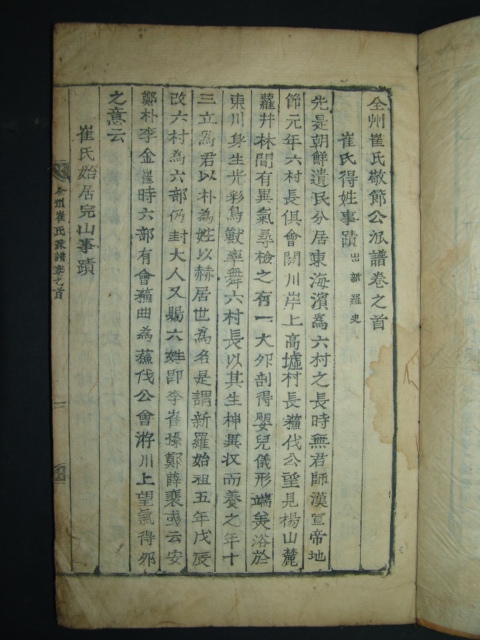 全州崔氏敬節公派譜卷之首
崔氏得姓事蹟 出新羅史
先是朝鮮遺民分居東海濱為六村之長時無君師漢宣帝地
節元年六村長俱會閼川岸上高墟村長蘓伐公望見楊山麓
蘿井林間有異氣尋檢之有一大卵剖得嬰兒儀形端美浴於
東川身生光彩鳥獸率舞六村長以其生神異収而養之年十
三立為君以朴為姓以赫居世為名是謂新羅始祖五年戊辰
改六村為六部仍封大人又賜六姓即李崔孫鄭薛裵或云安
鄭朴李金崔時六部有會蘓曲為蘓伐公會游川上望氣得卵
之意云
崔氏始居完山事蹟
全州崔氏派譜卷之首
一